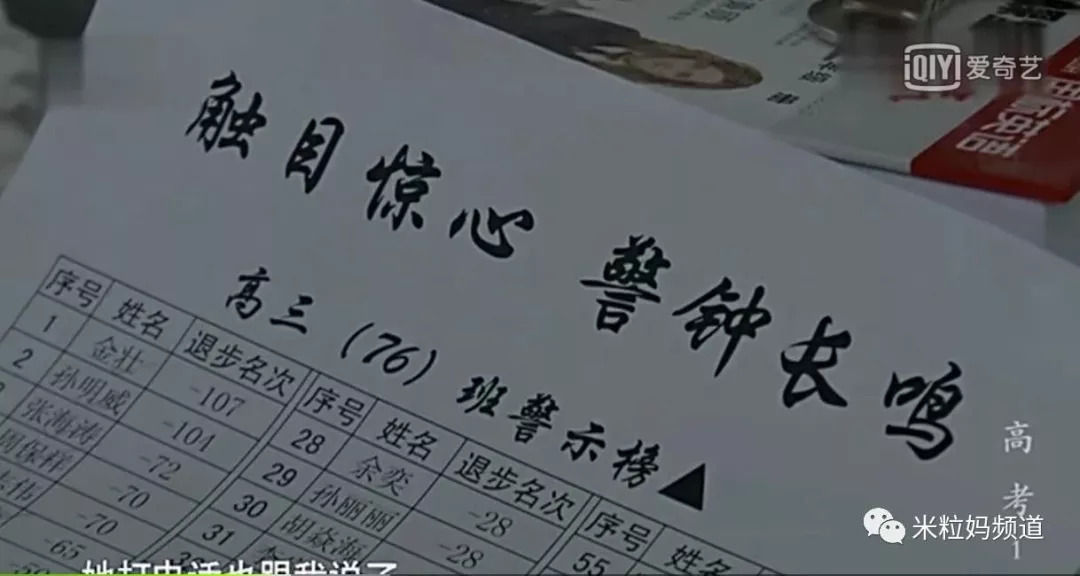 触目惊心 警钟长鸣
高三(76)班警示榜▲
序号 姓名 退步名次 序号 姓名 退步名次 序号 姓名
1 金壮 -107 28 余奕 -28 55
2 孙明威 -104 29 孙丽丽 -28
张海涛 -72 30 胡焱海
周保祥 -70 31
-70
-65
QIY 爱奇艺
高考1
米粒妈频道
她打电话也跟我说了